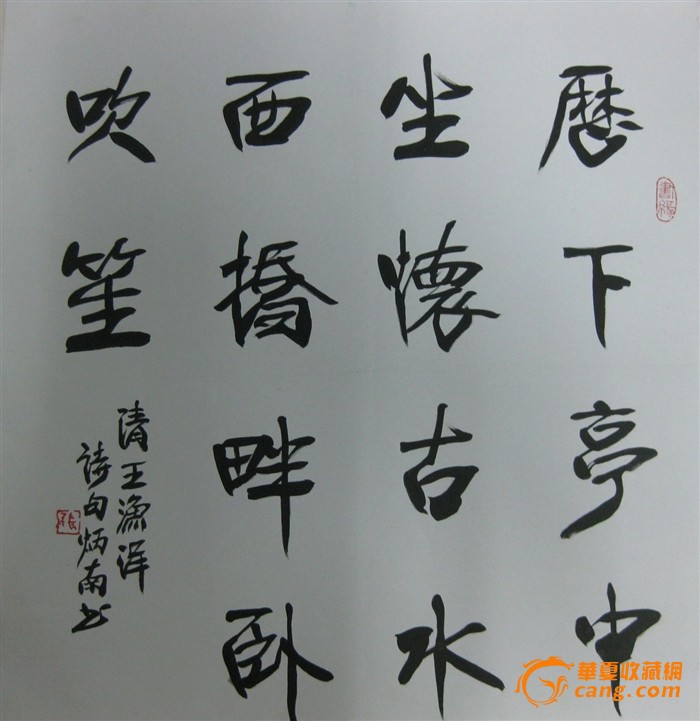 歷下亭中
坐懷古水
西橋畔臥
吹笙
清王漁洋
詩句炳南书
張
華夏收藏網
cang.com